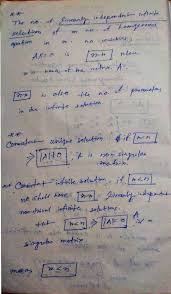 **
The no. of linearly independent infinite
solutions of m no. of homogeneous
equation in n no. variables
AX = 0 is n-r where
r = rank of the matrix A.
n-r is also the no. of parameters
in the infinite solution
**
Consistent unique solution if r=n
⇒ |A|≠0, it is non singular
matrix
Consistent infinite solution, if r<n
we shall have n-r linearly independent
non trivial infinite solution
that r<n ⇒ |A|=0
singular matrix
means r<n